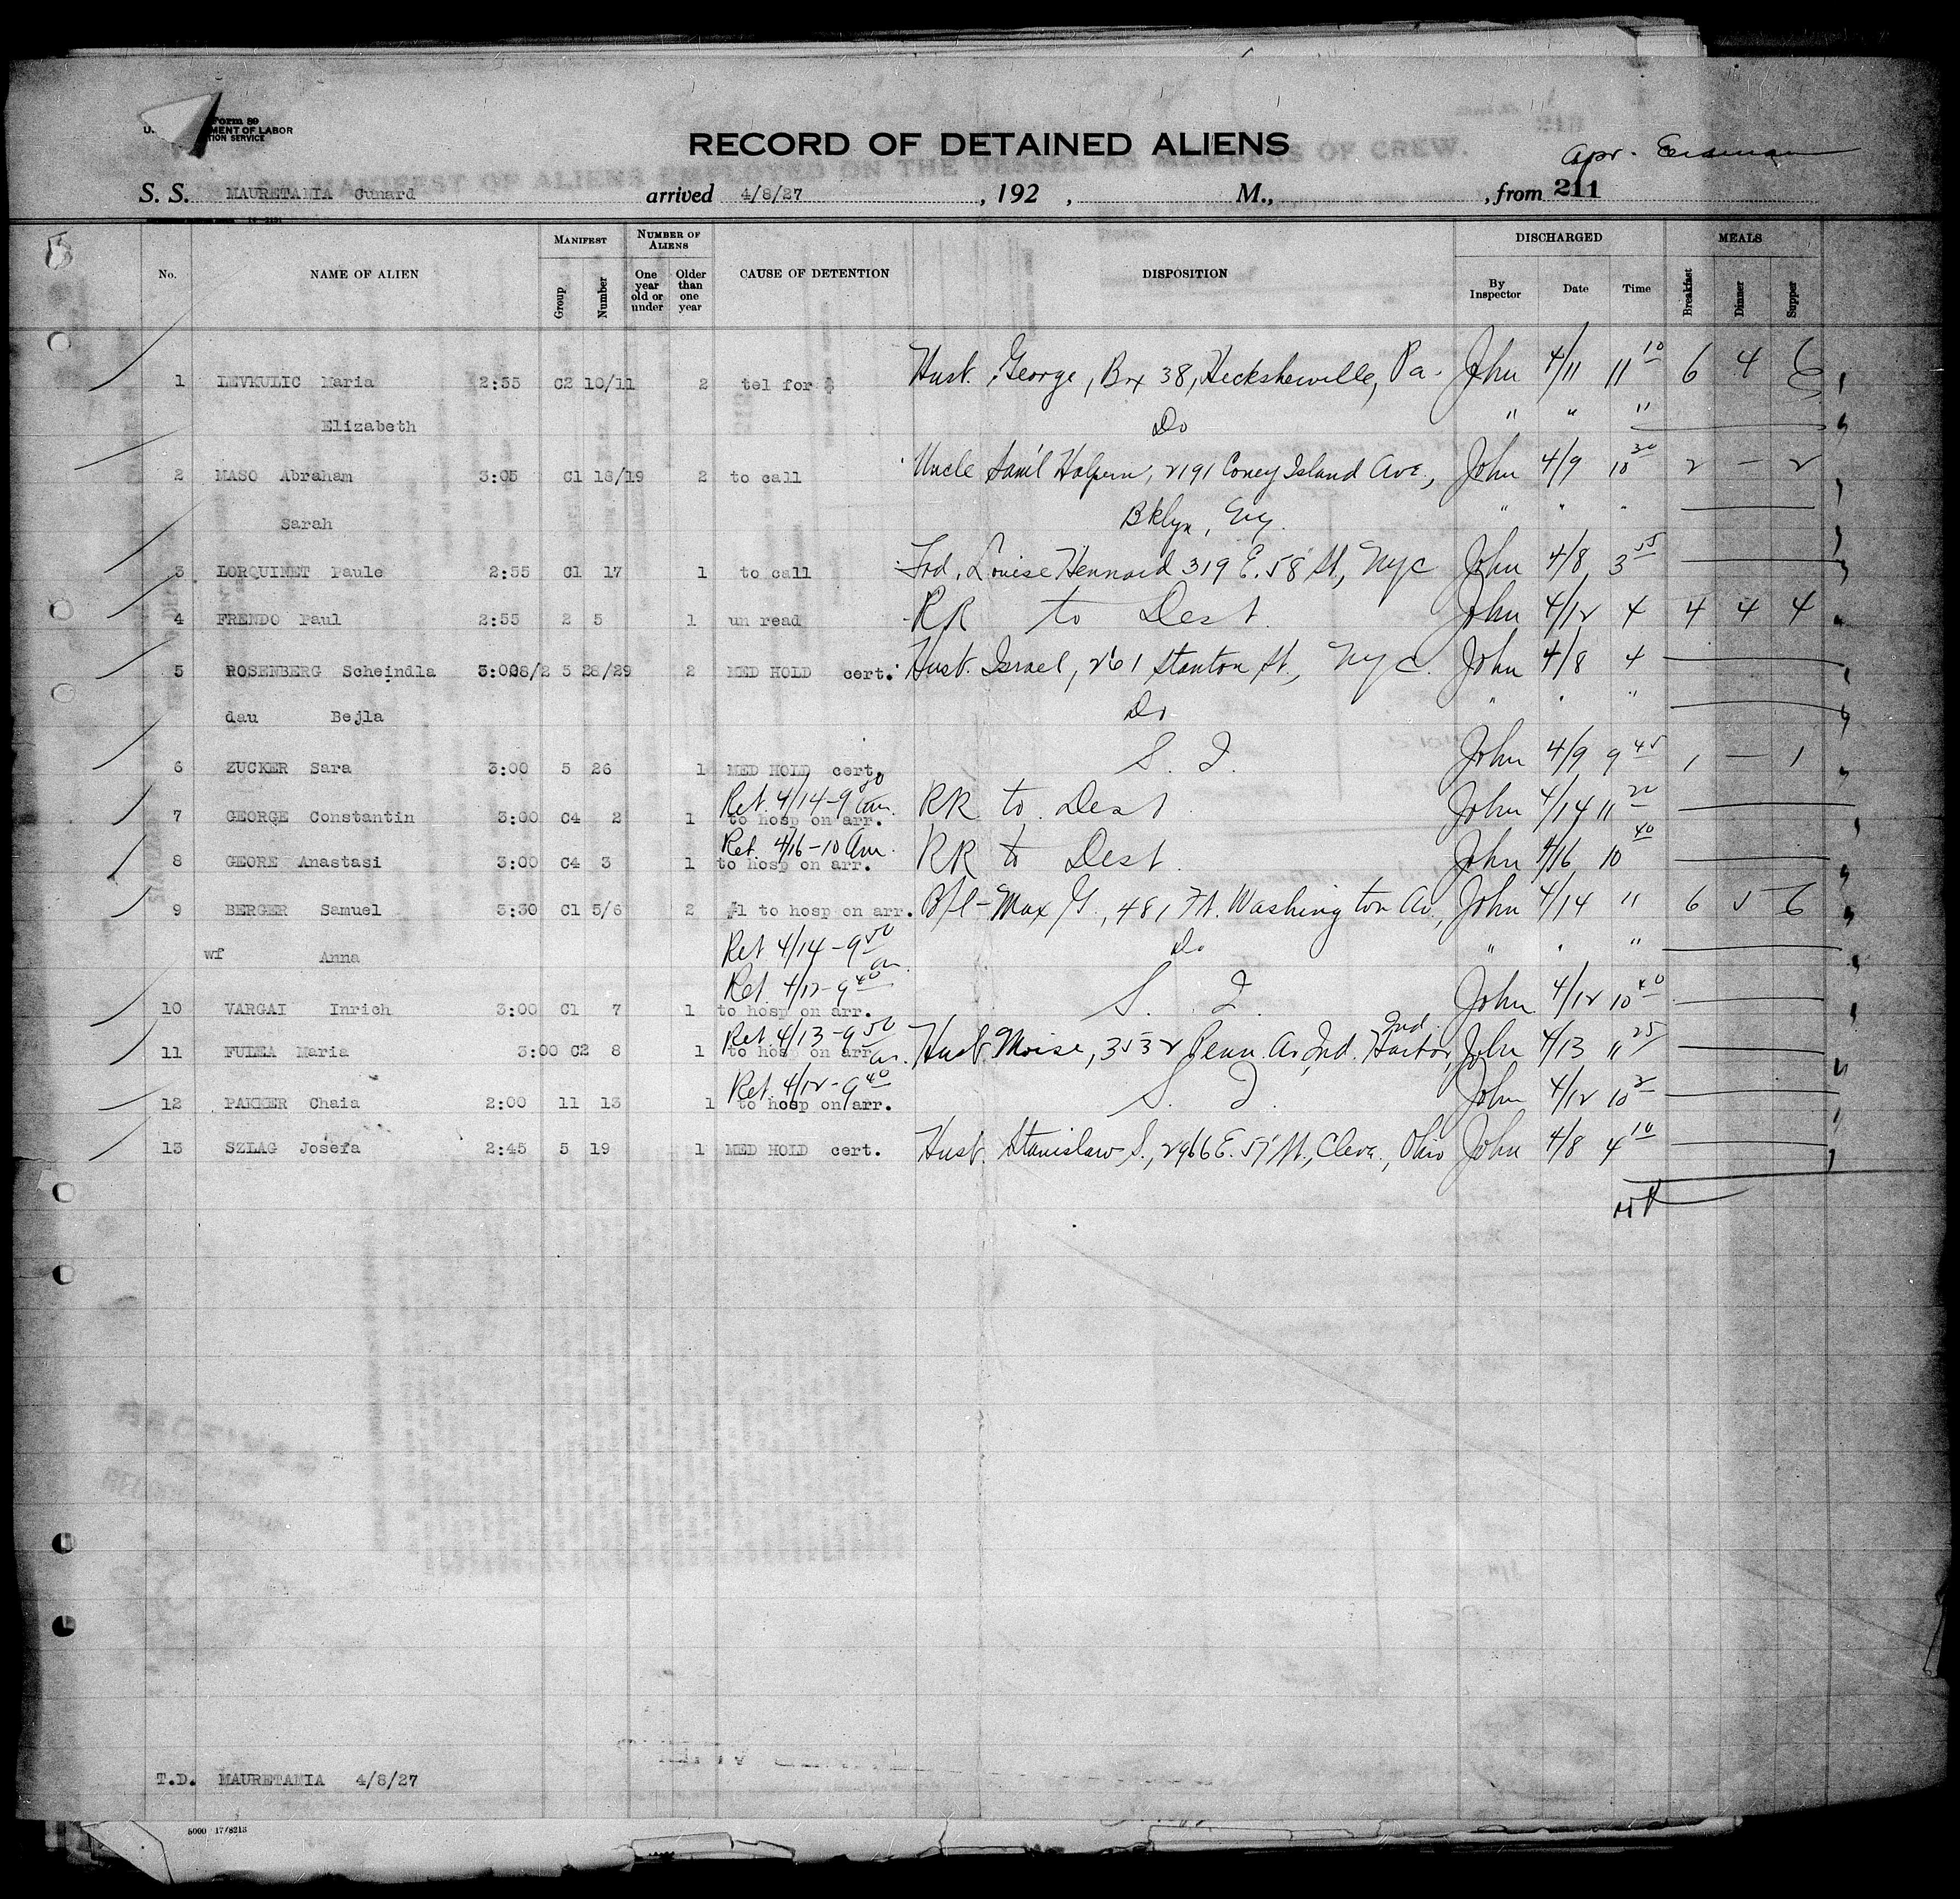 Form 89
MENT OF LABOR
TION SERVICE
RECORD OF DETAINED ALIENS
Apr.
S. S. MAURETANIA Cunard arrived 4/8/27 , 192 , M., , from 211
No. NAME OF ALIEN MANIFEST Group Number NUMBER OF ALIENS One year old or under Older than one year CAUSE OF DETENTION DISPOSITION DISCHARGED By Inspector Date Time MEALS Breakfast Dinner Supper
1 LEVKULIC Maria 2:55 C2 10/11 2 tel for Husb. George, Box 38, Hecksherville, Pa. John 4/11 11 10 6 4 6
Elizabeth Do " " "
2 MASO Abraham 3:05 C1 18/19 2 to call Uncle Sam'l Halpern, 2191 Coney Island Ave., John 4/9 10 30 2 — 2
Sarah Bklyn, Ny. " " "
3 LORQUINET Paule 2:55 C1 17 1 to call Frd. Louise Hennard 319 E. 58 St., NYC John 4/8 3 55
4 FRENDO Paul 2:55 2 5 1 un read RR to Dest. John 4/12 4 4 4 4
5 ROSENBERG Scheindla 3:00 28/2 5 28/29 2 MED HOLD cert. Husb. Israel, 261 Stanton St., NYC. John 4/8 4
dau Bejla Do " " "
6 ZUCKER Sara 3:00 5 26 1 MED HOLD cert. S. I. John 4/9 9 45 1 — 1
Ret. 4/14-9 50 am.
7 GEORGE Constantin 3:00 C4 2 1 to hosp on arr. RR to Dest John 4/14 11 20
Ret. 4/16-10 Am.
8 GEORE Anastasi 3:00 C4 3 1 to hosp on arr. RR to Dest. John 4/16 10 40
9 BERGER Samuel 3:30 C1 5/6 2 #1 to hosp on arr. B/l-Max G., 481 Ft. Washington Av., John 4/14 " 6 5 6
Ret 4/14-9 50 am.
wf Anna Do " " "
Ret. 4/12-9 40
10 VARGAI Inrich 3:00 C1 7 1 to hosp on arr. S. I. John 4/12 10 40
Ret. 4/13-9 50 am.
11 FULEA Maria 3:00 C2 8 1 to hosp on arr Husb. Moise, 3532 Penn. Av., Ind. Harbor, Ind. John 4/13 11 25
Ret. 4/12-9 40
12 PAKKER Chaia 2:00 11 13 1 to hosp on arr. S. I. John 4/12 10
13 SZLAG Josefa 2:45 5 19 1 MED HOLD cert. Husb. Stanislaw S., 2966 E. 57 St., Cleve., Ohio John 4/8 4 10
T.D. MAURETANIA 4/8/27
5000 17/8213